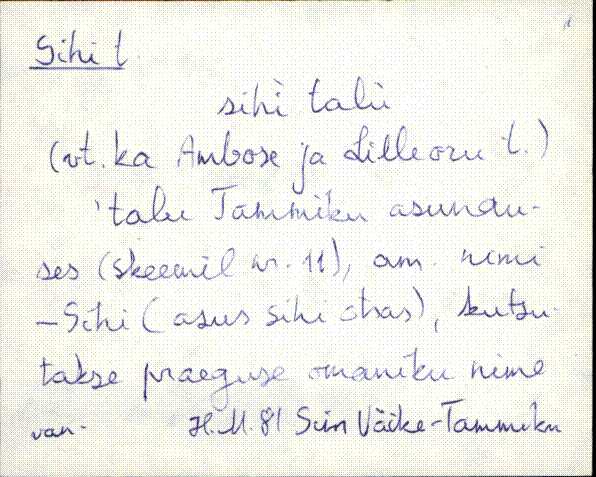 Sihi t.
sihì talù
(vt. ka Ambose ja Lilleoru t.)
'talu Tammiku asundu-
ses (skeemil nr. 11), am. nimi
- Sihi (asus sihi otsas), kutsu-
takse praeguse omaniku nime
H.M. 81 Sim Väike-Tammiku